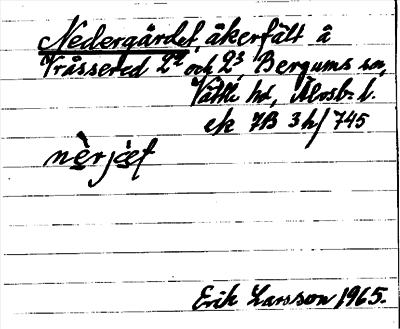 Nedergärdet, åkerfält å
Vråssered 2² och 2³, Bergums sn,
Vättle hd, Älvsb. l.
ek 7B 3hf 745
Erik Larsson 1965.